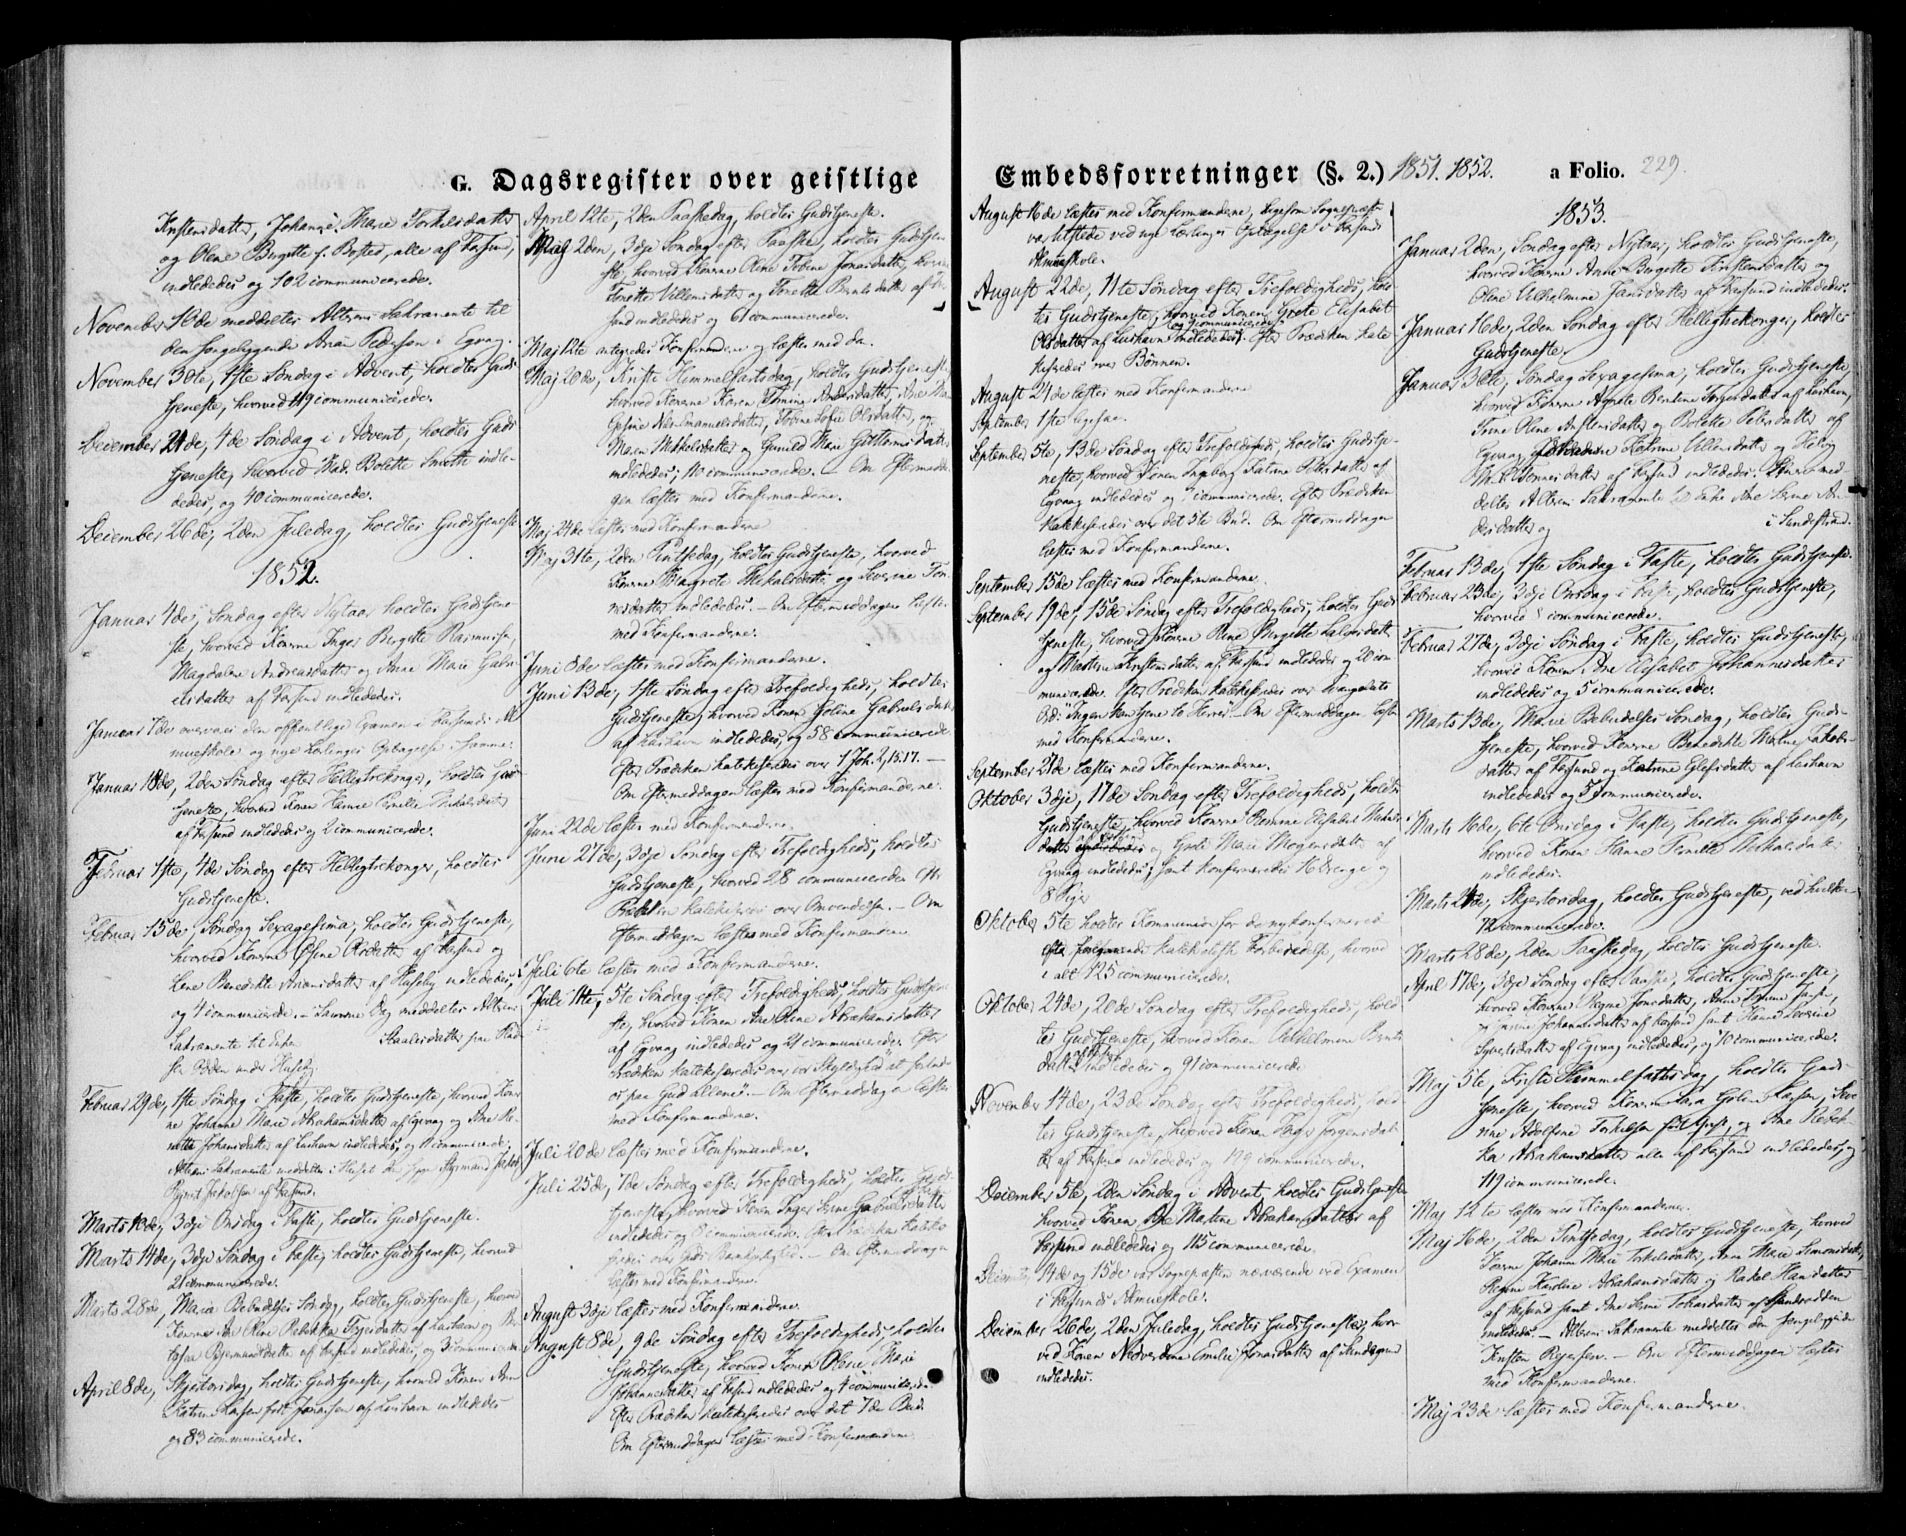 G. Dagsregister over geistlige
Kristensdatter, Johanne Marie Torkelsdatter
og Olene Birgitte f. Bosted, alle af Farsund,
indlededes og 102 communicerede.
November 16de meddeltes Alterens Sakramente til
den sengeliggende Arne Pedersen i Egvaag.
November 30te, 1ste Søndag i Advent, holdtes Guds-
tjeneste, hvorved 119 communicerede.
December 21de, 4de Søndag i Advent, holdtes Guds
tjeneste, hvorved Mad. Bolette Smith indle-
dedes, og 40 communicerede.
December 26de, 2den Juledag, holdtes Gudstjeneste
1852.
Januar 4de, Søndag efter Nytaar holdtes Gudstjene-
ste, hvorved Konerne Inger Birgitte Rasmussen,
Magdalene Andreasdatter og Anne Marie Gabri-
elsdatter af Farsund indlededes.
Januar 7de overvar den offentlige Examen i Farsunds Al
mueskole og nye Lærlinges Optagelse i samme.
Januar 18de, 2den Søndag efter Helligtrekonger, holdtes Guds
tjeneste, hvorved Konen Hanne Pernille Mikalsdatter
af Farsund indlededes og 2 communicerede.
Februar 1ste, 4de Søndag efter Helligtrekonger, holdtes
Gudstjeneste.
Februar 15de, Søndag Sexagesima, holdtes Gudstjeneste,
hvorved Konerne af Farsund og
Lene Benedikte af Huseby indlededes,
og 4 communicerede. – Samme Dag meddeltes Alterens
Sakramente til Enken Staalesdatter paa
under Huseby.
Februar 29de, 1ste Søndag i Faste, holdtes Gudstjeneste, hvorved Koner
ne Johanne Marie Abrahamsdatter af Egvaag og Ane
Johansdatter af Lushavn indlededes, og communicerede.
Alterens Sakramente meddeltes i Huset
Jakobsen af Farsund.
Marts 10de, 3dje Onsdag i Faste, holdtes Gudstjeneste.
Marts 14de, 3dje Søndag i Faste, holdtes Gudstjeneste, hvorved
21 communicerede.
Marts 28de, Maria Bebudelses Søndag, holdtes Gudstjeneste, hvorved
Konerne Ane Oline Rebekka Tarjesdatter af Lushavn og
af Farsund indlededes, og 3 communicerede
April 8de, Skjertorsdag, holdtes Gudstjeneste, hvorved Konen Ane
Katrine Larsen født Jonassen af Lushavn indlededes
og 83 communicerede.
April 12te, 2den Paaskedag, holdtes Gudstjeneste.
Maj 2den, 3dje Søndag efter Paaske, holdtes Gudstjene-
ste, hvorved Konerne Oline Tobine Jonasdatter,
Villumsdatter og Tonette Berntsdatter af Far
sund indlededes og 6 communicerede.
Maj 12te antegnedes Konfirmanderne og læstes med dem.
Maj 20de, Kristi Himmelfartsdag, holdtes Gudstjeneste
hvorved Konerne Karen Tomine Andersdatter, Ane Ma
Gesine Emanuelsdatter, Tobine Sofie Olsdatter, og
Maren Mikkelsdatter og Gunild Marie Guttormsdatter
indlededes; 10 communicerede. – Om Eftermidda-
gen læstes med Konfirmanderne.
Maj 24de læstes med Konfirmanderne
Maj 31te, 2den Pintsedag, holdtes Gudstjeneste, hvorved
Konerne Margrete Mikalsdatter og Severine Ton-
nesdatter indlededes. – Om Eftermiddagen læstes
med Konfirmanderne.
Juni 8de læstes med Konfirmanderne.
Juni 13de, 1ste Søndag efter Trefoldigheds, holdtes
Gudstjeneste, hvorved Konen Joline Gabrielsdatter
af Lushavn indlededes, og 58 communicerede
Efter Prædiken katekiseredes over 1 Joh. 2, 15.17. –
Om Eftermiddagen læstes med Konfirmanderne.
Juni 22de læstes med Konfirmanderne.
Juni 27de, 3dje Søndag efter Trefoldigheds, holdtes
Gudstjeneste, hvorved 28 communicerede. Efter
Prædiken katekiseredes over Omvendelsen. – Om
Eftermiddagen læstes med Konfirmanderne
Juli 6te læstes med Konfirmanderne.
Juli 11te, 5te Søndag efter Trefoldigheds, holdtes Gudstjene
ste, hvorved Konen Ane Oline Abrahamsdatter
af Egvaag indlededes og 21 communicerede. Efter
Prædiken katekiseredes over vor Skyldighed at forlade
os paa Gud allene. – Om Eftermiddagen læstes
med Konfirmanderne.
Juli 20de læstes med Konfirmanderne.
Juli 25de, 7de Søndag efter Trefoldigheds, holdtes Guds-
tjeneste, hvorved Konen Inger Serine Gabrielsdatter
indlededes og 8 communicerede. Efter Prædiken kateki-
seredes over Guds Barmhjertighed. – Om Eftermiddagen
læstes med Konfirmanderne.
August 3dje læstes med Konfirmanderne.
August 8de, 9de Søndag efter Trefoldigheds, holdtes
Gudstjeneste, hvorved Konen Oline Marie
Johannesdatter af Farsund indlededes og 4 communicerede.
Efter Prædiken katekiseredes over det 7de Bud.
Om Eftermiddagen læstes med Konfirmanderne
Embedsforretninger (§. 2.) 1851. 1852. a Folio. 229.
August 16de læstes med Konfirmanderne, ligesom Sognepræsten
var tilstede ved nye Lærlinges Optagelse i Farsunds
Almueskole.
August 22de, 11te Søndag efter Trefoldigheds, hol
tes Gudstjeneste, hvorved Konen Grete Elisabet
og 9 communicerede
Olsdatter af Lushavn indlededes. Efter Prædiken kate
kiseredes over Bønnen.
August 24de læstes med Konfirmanderne
September 1ste ligesaa.
September 5te, 13de Søndag efter Trefoldigheds, holdtes Gudstje-
neste, hvorved Konen Ingeborg Katrine Pedersdatter af
Egvaag indlededes og 7 communicerede. Efter Prædiken
katekiseredes over det 5te Bud. Om Eftermiddagen
læstes med Konfirmanderne.
September 15de læstes med Konfirmanderne.
September 19de, 15de Søndag efter Trefoldigheds, holdtes Guds
tjeneste, hvorved Konerne Rine Birgitte Halvorsdatter
og Martine Kristensdatter af Farsund indlededes og 20 com
municerede. Efter Prædiken katekiseredes over Evangeliets
Ord: "Ingen kan tjene to Herrer". – Om Eftermiddagen læstes
med Konfirmanderne.
September 21de læstes med Konfirmanderne.
Oktober 3dje, 17de Søndag efter Trefoldigheds, holdtes
Gudstjeneste, hvorved Konerne Elisabet
og Grete Marie Mogensdatter af
Egvaag indlededes; samt konfirmeredes 16 Drenge og
8 Piger
Oktober 5te holdtes Kommunion for de nykonfirmerede
efter foregaaende katekisisk Forberedelse, hvorved
i alt 125 communicerede.
Oktober 24de, 20de Søndag efter Trefoldigheds, hold
tes Gudstjeneste, hvorved Konen Vilhelmine Bernts
datter indlededes og 91 communicerede
November 14de, 23de Søndag efter Trefoldigheds, hold
tes Gudstjeneste, hvorved Konen Jørgensdat
ter af Farsund indlededes og 119 communicerede.
December 5te, 2den Søndag i Advent, holdtes Gudstjeneste
hvorved Konen Ane Martine Abrahamsdatter af
Farsund indlededes og 115 communicerede.
December 14de og 15de var Sognepræsten nærværende ved Examen
i Farsunds Almueskole.
December 26de, 2den Juledag, holdtes Gudstjeneste, hvor
ved Konen Nedverdine Emilie Jonasdatter af Farsund
indlededes.
1853.
Januar 2den, Søndag efter Nytaar, holdtes Gudstjeneste,
hvorved Konerne Anne Birgitte Kristensdatter og
Oline Vilhelmine Jansdatter af Farsund indlededes.
Januar 16de, 2den Søndag efter Helligtrekonger, holdtes
Gudstjeneste.
Januar 30te, Søndag Sexagesima, holdtes Gudstjeneste,
hvorved Konerne Agnete Bentine Torgersdatter af Lushavn,
Oline Kristensdatter og Bolette Pedersdatter af
Egvaag, Johanne Katrine Villumsdatter og Helvig
Tønnesdatter af Farsund indlededes. Hvorved med
deltes Alterens Sakramente til Enken Ane Serine An
dersdatter i Sundestrand.
Februar 13de, 1ste Søndag i Faste, holdtes Gudstjeneste.
Februar 23de, 3dje Onsdag i Faste, holdtes Gudstjeneste,
hvorved communicerede.
Februar 27de, 3dje Søndag i Faste, holdtes Gudstjeneste,
hvorved Konen Ane Elisabet Johannesdatter
indlededes og 5 communicerede.
Marts 13de, Maria Bebudelses Søndag, holdtes Guds-
tjeneste, hvorved Konerne Benedikte Maline Jakobs-
datter af Farsund og Katrine Eilefsdatter af Lushavn
indlededes og 5 communicerede.
Marts 16de, 6te Onsdag i Faste, holdtes Gudstjeneste,
hvorved Konen Hanne Pernille Mikalsdatter
indlededes.
Marts 24de, Skjertorsdag, holdtes Gudstjeneste, ved hvilken
72 communicerede.
Marts 28de, 2den Paaskedag, holdtes Gudstjeneste.
April 17de, 3dje Søndag efter Paaske, holdtes Gudstjeneste,
hvorved Konerne Regine Jonsdatter, Anne Tomine
og Johannesdatter af Farsund samt Hanne Severine
Syvertsdatter af Egvaag indlededes, og 10 communicerede.
Maj 5te, Kristi Himmelfartsdag, holdtes Guds-
tjeneste, hvorved Konerne Sara Larsen, Seve
rine Adolfine Torkelsen født Gjert, og Ane Rebek
ka Abrahamsdatter alle af Farsund indlededes, og
119 communicerede.
Maj 12te læstes med Konfirmanderne.
Maj 16de, 2den Pintsedag, holdtes Gudstjeneste, hvorved
Konerne Johanne Marie Torkelsdatter, Anne Marie Simonsdatter
Regine Karoline Abrahamsdatter og Rakel Hansdatter
af Farsund samt Ane Serine Tobiasdatter af Sandvodden
indlededes. – Alterens Sakramente meddeltes den sengeliggende
Kristen Reiersen. – Om Eftermiddagen læstes
med Konfirmanderne.
Maj 23de læstes med Konfirmanderne.